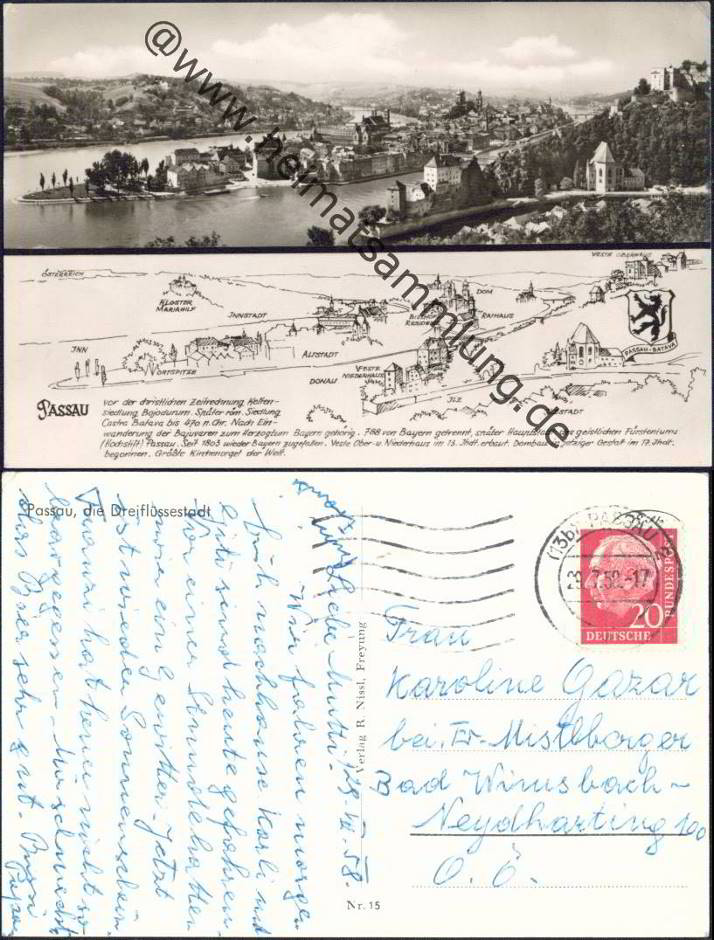 @www.heimatsammlung.de
ÖSTERREICH
VESTE OBERHAUS
KLOSTER
MARIAHILF
INNSTADT
DOM
RATHAUS
INN
ORTSPITZE
ALTSTADT
DONAU
VESTE
NIEDERHAUS
ILZ
PASSAU-BATAVA
PASSAU
vor der christlichen Zeitrechnung Kelten-
siedlung Bojodurum. Später röm. Siedlung
Castra Batava bis 470 n. Chr. Nach Ein-
wanderung der Bajuvaren zum Herzogtum Bayern gehörig. 788 von Bayern getrennt, später Hauptstadt des geistlichen Fürstentums
(Hochstift) Passau. Seit 1803 wieder Bayern zugefallen. Veste Ober- u. Niederhaus im 13. Jhdt. erbaut. Dombau in jetziger Gestalt im 17. Jhdt.
begonnen. Größte Kirchenorgel der Welt.
Passau, die Dreiflüssestadt
28. VII. 58.
Liebe Mutti!
Wir fahren morgen
früh nach Hause Karli und
Gitti sind heute gefahren
Vor einer Stunde hatten
wir ein Gewitter. Jetzt
ist wieder Sonnenschein
hat heuer nicht so
das Bier sehr gut.
Verlag R. Nissl, Freyung
Nr. 15
(13b) PASSAU 2
29.7.58.-17
20
DEUTSCHE
BUNDESPOST
Frau
Karoline Gazar
bei. Fr. Mistlberger
Bad Wimsbach-
Neydharting 100
O. Ö.